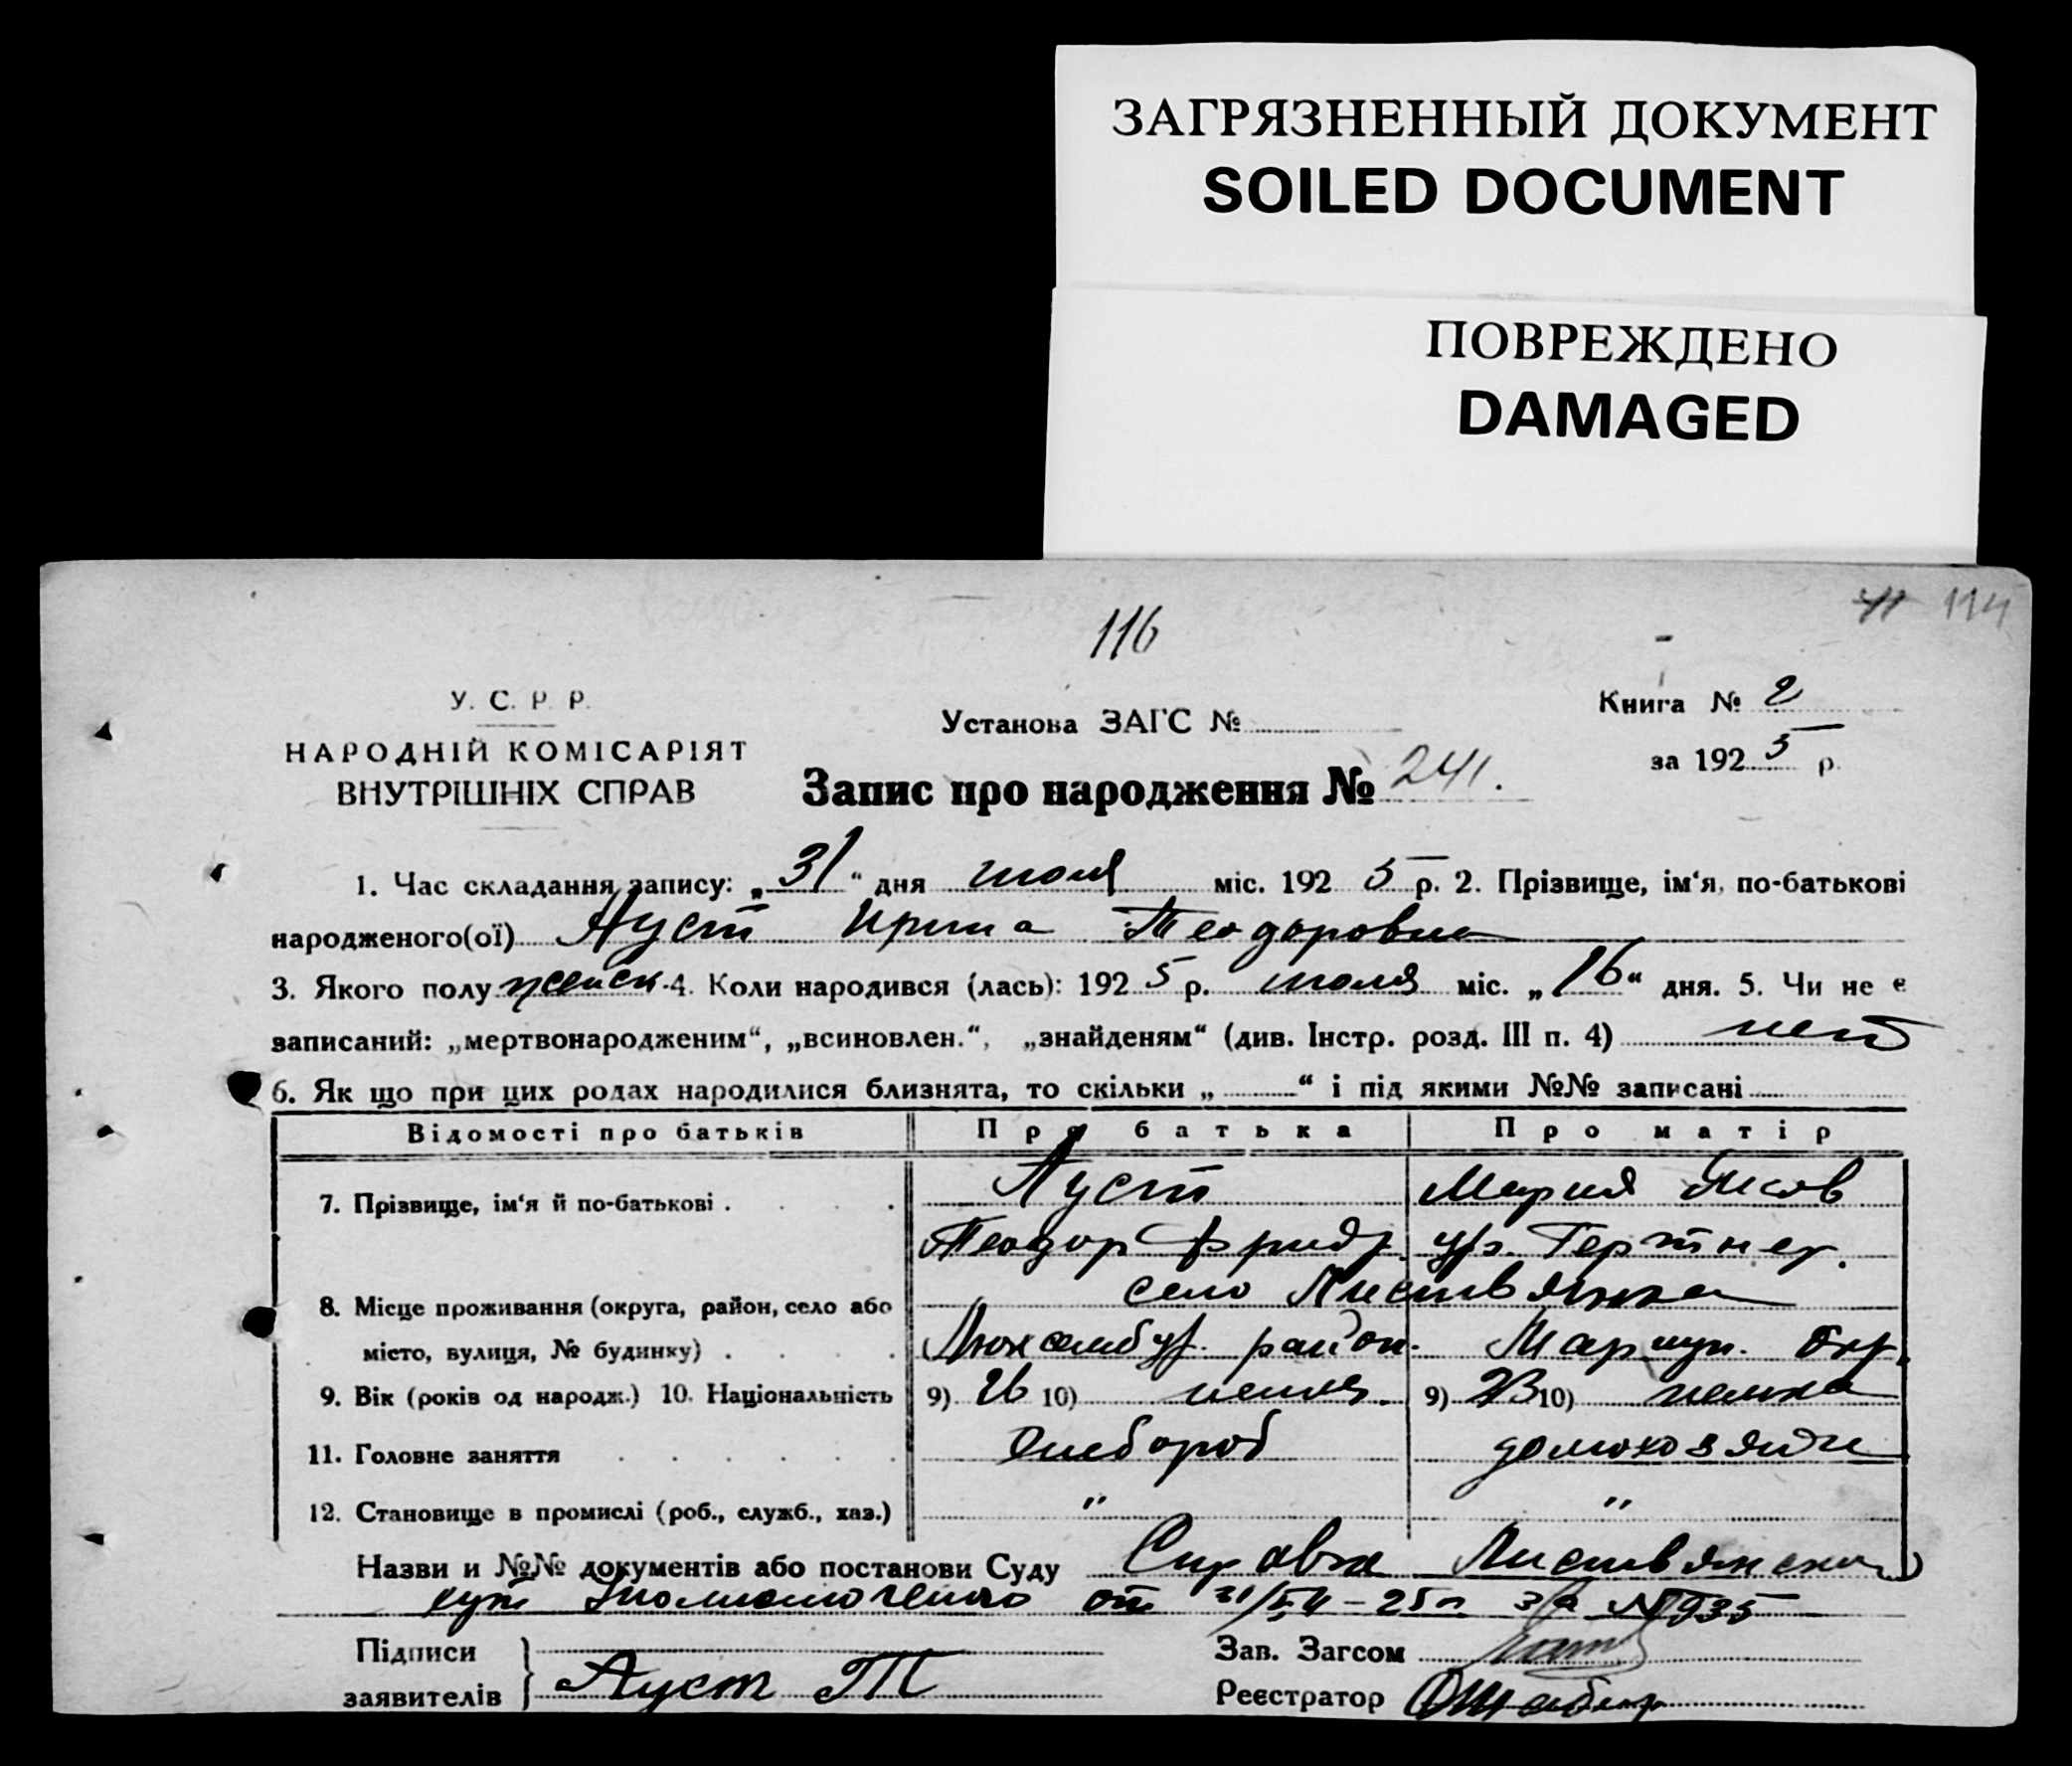 ЗАГРЯЗНЕННЫЙ ДОКУМЕНТ
SOILED DOCUMENT
ПОВРЕЖДЕНО
DAMAGED
114
116
У. С. Р. Р.
НАРОДНІЙ КОМІСАРІЯТ
ВНУТРІШНІХ СПРАВ
Установа ЗАГС №
Книга № 2
за 1925 р.
Запис про народження № 241.
1. Час складання запису: „31“ дня июля міс. 1925 р. 2. Прізвище, ім‘я, по-батькові
народженого(ої) Ауст Ирма Теодоровна
3. Якого полу женск. 4. Коли народився (лась): 1925 р. июля міс. „16“ дня. 5. Чи не є
записаний: „мертвонародженим“, „всиновлен.“, „знайденям“ (див. Інстр. розд. III п. 4) нет
6. Як що при цих родах народилися близнята, то скільки „ “ і під якими №№ записані
Відомості про батьків Про батька Про матір
7. Прізвище, ім‘я й по-батькові . Ауст Мария Яков
Теодор Фридр. ур. Гертнер.
8. Місце проживання (округа, район, село або село Листвянка
місто, вулиця, № будинку) . Люксембур. район. Мариуп. окр.
9. Вік (років од народж.) 10. Національність 9) 26 10) немец. 9) 23 10) немка
11. Головне заняття хлебороб домохозяйк
12. Становище в промислі (роб., служб., хаз.) " "
Назви и №№ документів або постанови Суду Справка Листвянско
от 31/VII-25 г. за № 935
Підписи
заявителів Ауст Т
Зав. Загсом
Реєстратор